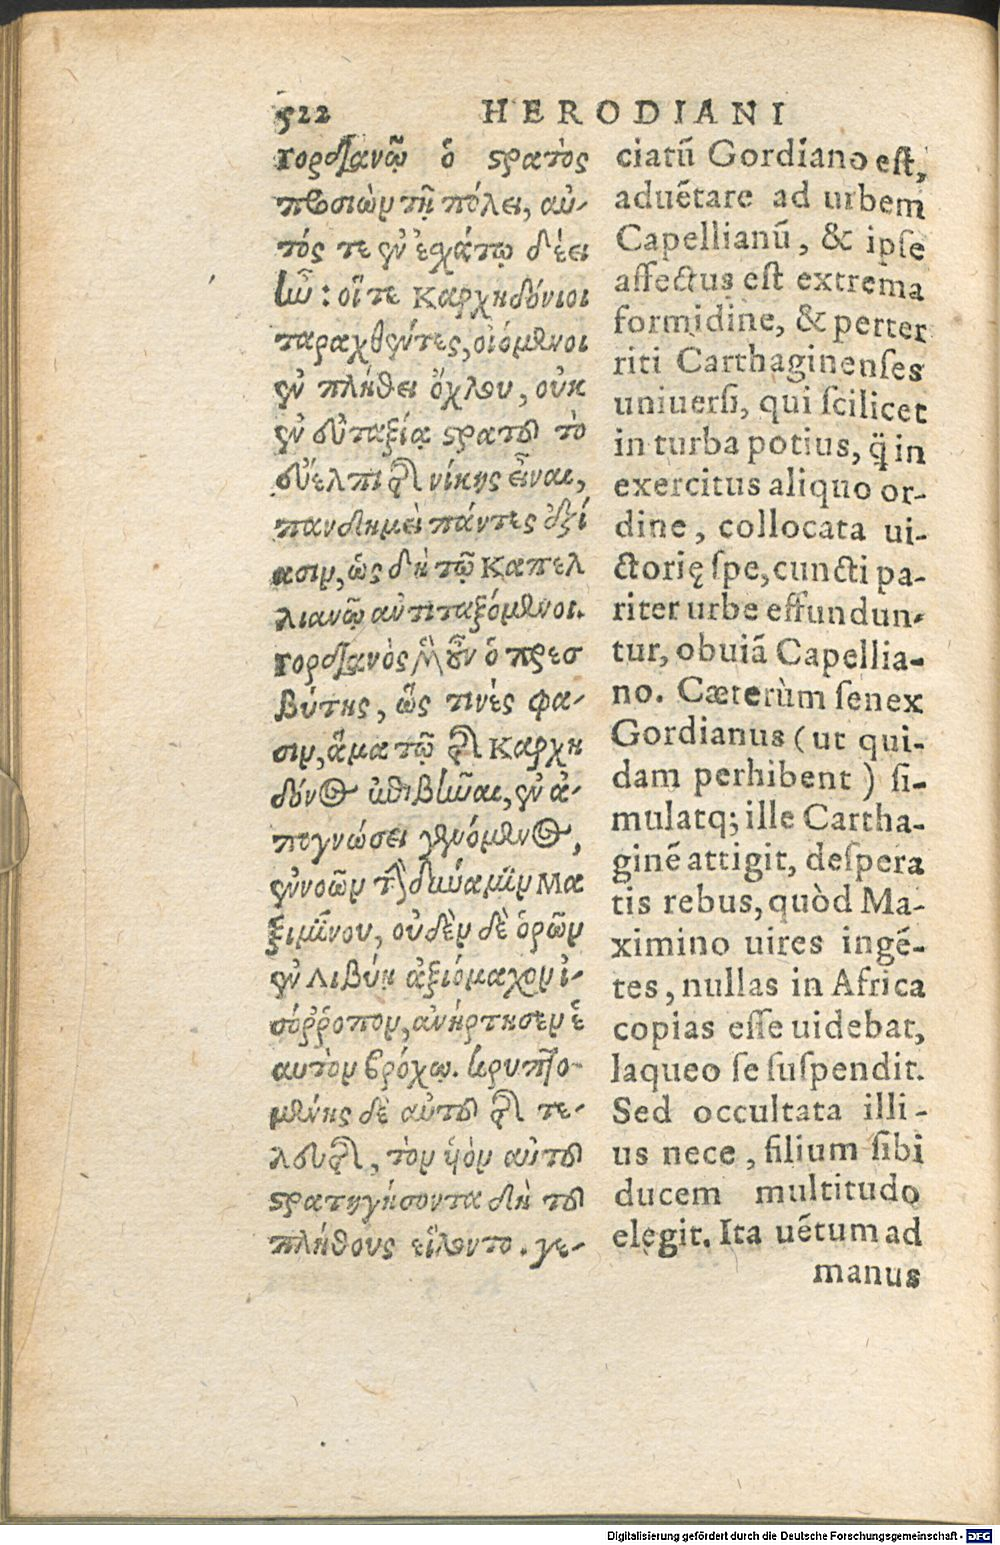 522 HERODIANI
Γορδιανῷ ὁ στρατὸς
προσιὼν τῇ πόλει, αὐ-
τός τε ἐν ἐσχάτῳ δέει
ἦν: οἵ τε Καρχηδόνιοι
ταραχθέντες, οἰόμενοι
ἐν πλήθει ὄχλου, οὐκ
ἐν εὐταξίᾳ στρατοῦ τὸ
εὔελπι τῆς νίκης εἶναι,
πανδημεὶ πάντες ἐξί
ασιν, ὡς δὴ τῷ Καπελ
λιανῷ ἀντιταξόμενοι.
Γορδιανὸς μὲν οὖν ὁ πρεσ
βύτης, ὥς τινές φα-
σιν, ἅμα τῷ τῆς Καρχη
δόνος ἐπιβῆναι, ἐν ἀ-
πογνώσει γενόμενος,
ἐννοῶν τὴν δύναμιν Μα
ξιμίνου, οὐδὲν δὲ ὁρῶν
ἐν Λιβύῃ ἀξιόμαχον ἰ-
σόῤῥοπον, ἀνήρτησεν ἑ
αυτὸν βρόχῳ. κρυπτο-
μένης δὲ αὐτοῦ τῆς τε-
λευτῆς, τὸν υἱὸν αὐτοῦ
στρατηγήσοντα δὴ τοῦ
πλήθους εἵλοντο. γε-
ciatū Gordiano est,
aduētare ad urbem
Capellianū, & ipse
affectus est extrema
formidine, & perter
riti Carthaginenses
uniuersi, qui scilicet
in turba potius, q̃ in
exercitus aliquo or-
dine, collocata ui-
ctorię spe, cuncti pa-
riter urbe effundun-
tur, obuiā Capellia-
no. Cæterùm senex
Gordianus (ut qui-
dam perhibent) si-
mulatq; ille Cartha-
ginē attigit, despera
tis rebus, quòd Ma-
ximino uires ingē-
tes, nullas in Africa
copias esse uidebat,
laqueo se suspendit.
Sed occultata illi-
us nece, filium sibi
ducem multitudo
elegit. Ita uētum ad
manus
Digitalisierung gefördert durch die Deutsche Forschungsgemeinschaft - DFG